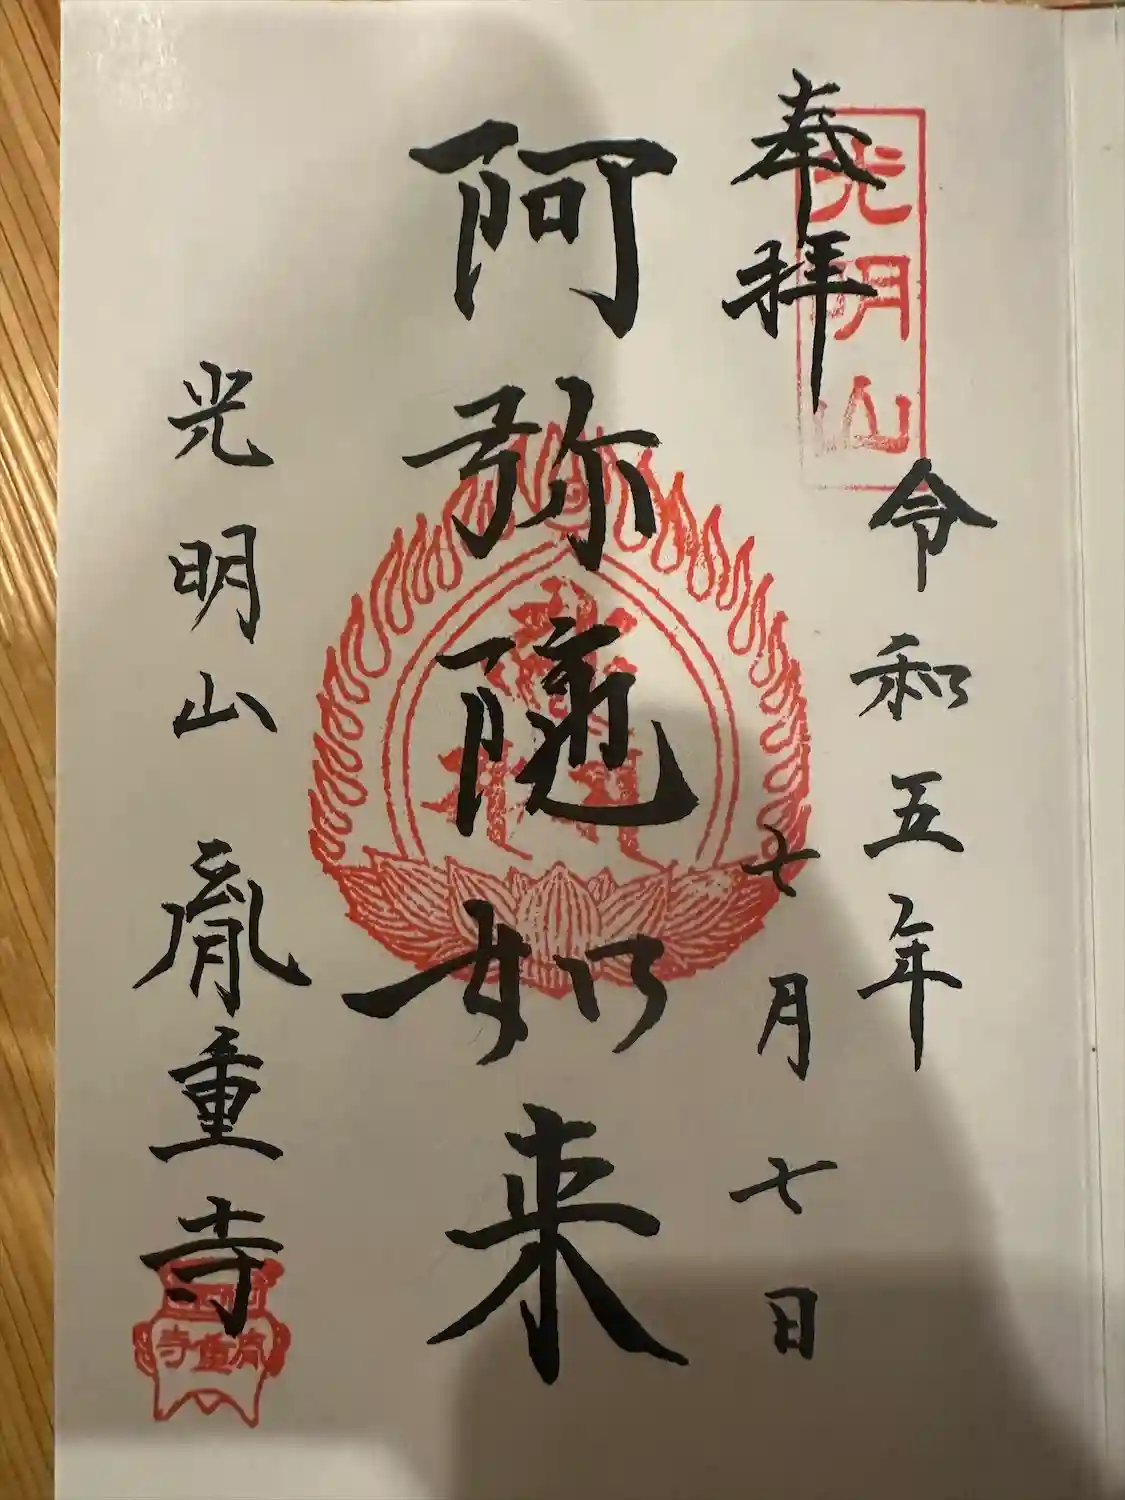 奉拝
光明山
令和五年
七月七日
阿弥陀如来
光明山 胤重寺
胤重寺